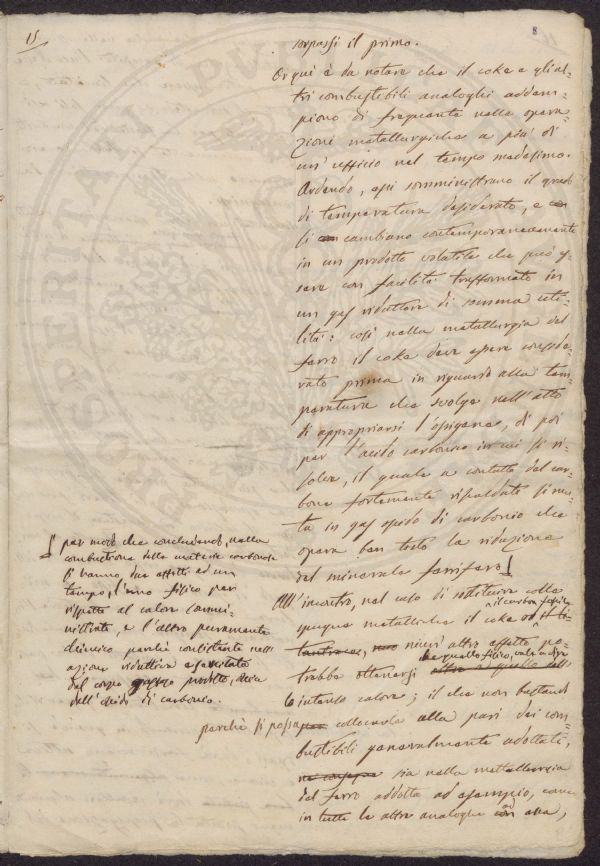 15
8
sorpassi il primo.
Or qui è da notare che il coke e gli al-
tri combustibili analoghi addem-
piono di frequente nelle opera-
zioni metallurgiche a più di
un' ufficio nel tempo medesimo.
Ardendo, essi somministrano il grado
di temperatura desiderato, e
si cambiano contemporaneamente
in un prodotto volatile che può es
sere con facilità trasformato in
un gas riduttore di somma uti-
lità: così nella metallurgia del
ferro il coke deve essere conside-
rato prima in riguardo alla tem-
peratura che svolge nell'atto
di appropriarsi l'ossigene, di poi
per l'acido carbonico in cui si ri-
solve, il quale a contatto del car-
bone fortemente riscaldato si mu-
ta in gas ossido di carbonio che
opera ben tosto la riduzione
del minerale ferrifero
per modo che concludendo, nella
combustione delle materie carbonose
si hanno due effetti ad un
tempo, l'uno fisico per
rispetto al calore
, e l'altro puramente
chimico perchè consistente nell'
azione riduttiva esercitata
dal corpo gassoso prodotto, ossia
dell'ossido di carbonio.
All'incontro, nel caso di sostituire colle
metalliche il coke
il carbon fossile
niun' altro effetto po-
trebbe ottenersi
che quello fisico, vale a dire
intenso calore; il che non bastando
perchè si possa collocarla alla pari dei com-
bustibili generalmente adottati,
sia nella metallurgia
del ferro addotta ad esempio, come
in tutte le altre analoghe ad essa,